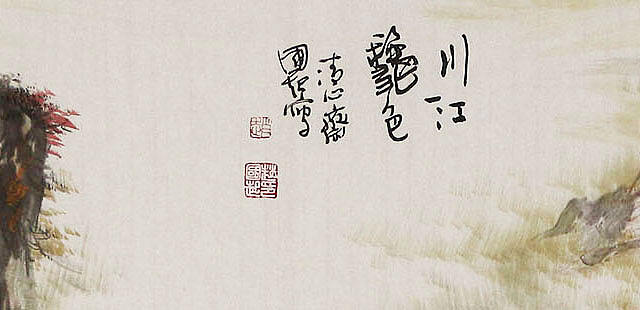 川江
龝色
清心齋
國起寫